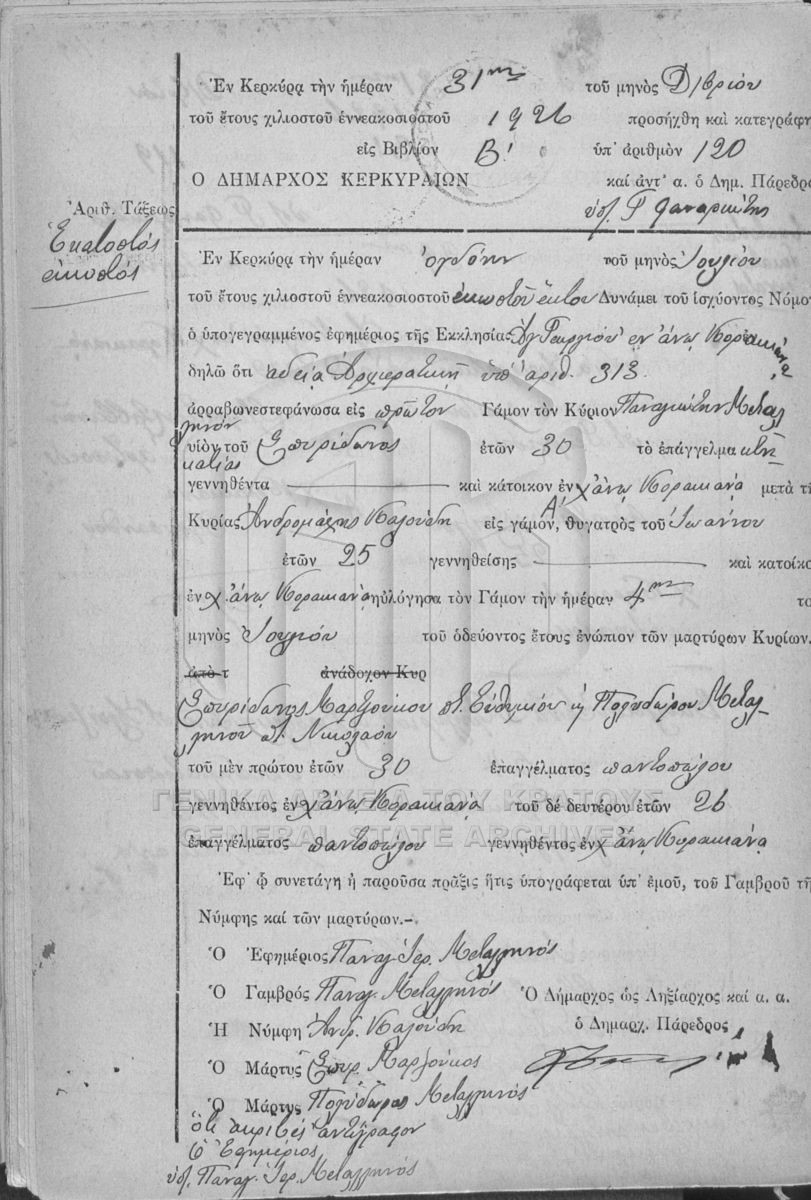 Ἐν Κερκύρᾳ τὴν ἡμέραν 31ην τοῦ μηνὸς Δ/βρίου
τοῦ ἔτους χιλιοστοῦ ἐννεακοσιοστοῦ 1926 προσήχθη καὶ κατεγράφη
εἰς Βιβλίον Β' ὑπ' ἀριθμὸν 120
Ο ΔΗΜΑΡΧΟΣ ΚΕΡΚΥΡΑΙΩΝ καί ἀντ' α. ὁ Δημ. Πάρεδρο
ὑπ. Γ Φαναριώτης
Ἀριθ. Τάξεως
Ἑκατοστὸς
εἰκοστός
Ἐν Κερκύρᾳ τὴν ἡμέραν ὀγδόην τοῦ μηνὸς Ἰουλίου
τοῦ ἔτους χιλιοστοῦ ἐννεακοσιοστοῦ εἰκοστοῦ ἕκτου Δυνάμει τοῦ ἰσχύοντος Νόμου
ὁ ὑπογεγραμμένος ἐφημέριος τῆς Εκκλησίας Ἁγ Γεωργίου ἐν ἄνω Κορακιάνᾳ
δηλῶ ὅτι ἀδείᾳ Ἀρχιερατικῇ ὑπ' ἀριθ. 313
ἀρραβωνεστεφάνωσα εἰς πρῶτον Γάμον τὸν Κύριον Παναγιώτην Μεταλ
ληνόν
υἱὸν τοῦ Σπυρίδωνος ἐτῶν 30 τὸ ἐπάγγελμα κτη
ματίας
γεννηθέντα καὶ κάτοικον ἐν χ. ἄνω Κορακιάνᾳ μετὰ τῆ
Κυρίας Ἀνδρομάχης Καλούδη εἰς Α' γάμον, θυγατρὸς τοῦ Ἰωάννου
ἐτῶν 25 γεννηθείσης καὶ κατοίκο
ἐν χ. ἄνω Κορακιάνᾳ ηὐλόγησα τὸν Γάμον τὴν ἡμέραν 4ην το
μηνὸς Ἰουλίου τοῦ ὁδεύοντος ἔτους ἐνώπιον τῶν μαρτύρων Κυρίων.
ἀπὸ τ ἀνάδοχον Κυρ
Σπυρίδωνος Μαρτζούκου π. Εὐθυμίου ἢ Πολυδώρου Μεταλ-
ληνοῦ π. Νικολάου
τοῦ μὲν πρώτου ἐτῶν 30 ἐπαγγέλματος παντοπώλου
γεννηθέντος ἐν χ. ἄνω Κορακιάνᾳ τοῦ δέ δευτέρου ἐτῶν 26
ἐπαγγέλματος παντοπώλου γεννηθέντος ἐν χ. ἄνω Κορακιάνᾳ
ΓΕΝΙΚΑ ΑΡΧΕΙΑ ΤΟΥ ΚΡΑΤΟΥΣ
GENERAL STATE ARCHIVES
Ἐφ' ᾧ συνετάγη ἡ παροῦσα πρᾶξις ἥτις ὑπογράφεται ὑπ' ἐμοῦ, τοῦ Γαμβροῦ τῆ
Νύμφης καί τῶν μαρτύρων.–
Ὁ Ἐφημέριος Παναγ. Ἱερ. Μεταλληνός
Ὁ Γαμβρός Παναγ. Μεταλληνός Ὁ Δήμαρχος ὡς Ληξίαρχος καί α. α.
Ἡ Νύμφη Ἀνδρ. Καλούδη ὁ Δημαρχ. Πάρεδρος
Ὁ Μάρτυς Σπυρ. Μαρτζούκος
Ὁ Μάρτυς Πολύδωρος Μεταλληνός
ὅτι ἀκριβὲς ἀντίγραφον
Ὁ Ἐφημέριος
ὑπ. Παναγ. Ἱερ. Μεταλληνός